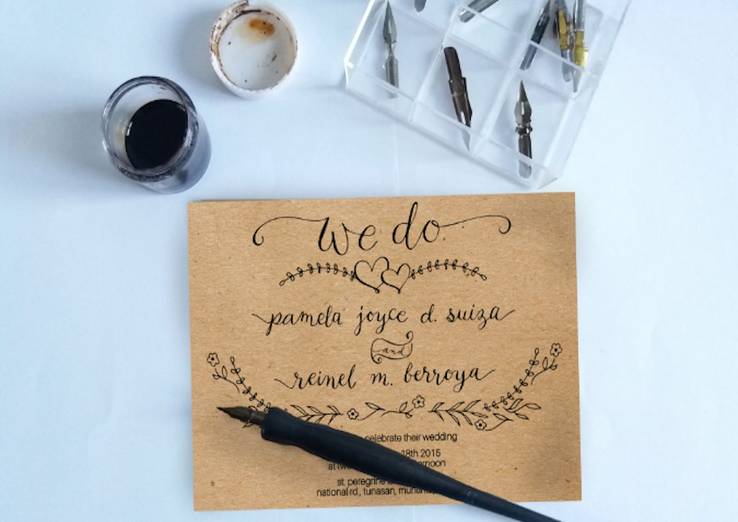 we do
pamela joyce d. suiza
and
reinel m. berroya
celebrate their wedding
18th 2015
at
st. peregrine
national rd., tunasan,